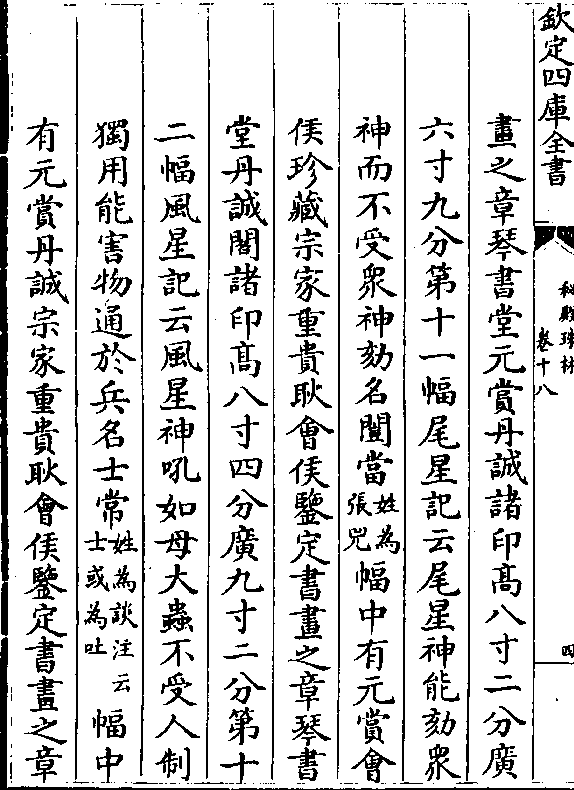 欽定四庫全書
秘殿珠林
卷十八
四
畫之章琴書堂元賞丹誠諸印髙八寸二分廣
六寸九分第十一幅尾星記云尾星神能劾衆
神而不受衆神劾名闓當姓為張兕幅中有元賞㑹
侯珍藏宗家重貴耿㑹侯鑒定書畫之章琴書
堂丹誠閣諸印髙八寸四分廣九寸二分第十
二幅風星記云風星神吼如母大蟲不受人制
獨用能害物通於兵名士常姓為談注云士或為吐幅中
有元賞丹誠宗家重貴耿㑹侯鑒定書畫之章